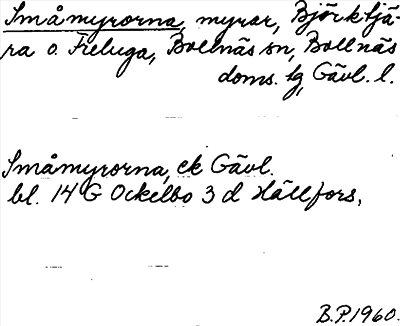 Småmyrorna, myrar, Björktjä-
ra o. Freluga, Bollnäs sn, Bollnäs
doms. tg, Gävl. l.
Småmyrorna, ek Gävl.
bl. 14 G Ockelbo 3 d Hällfors,
B.P. 1960.